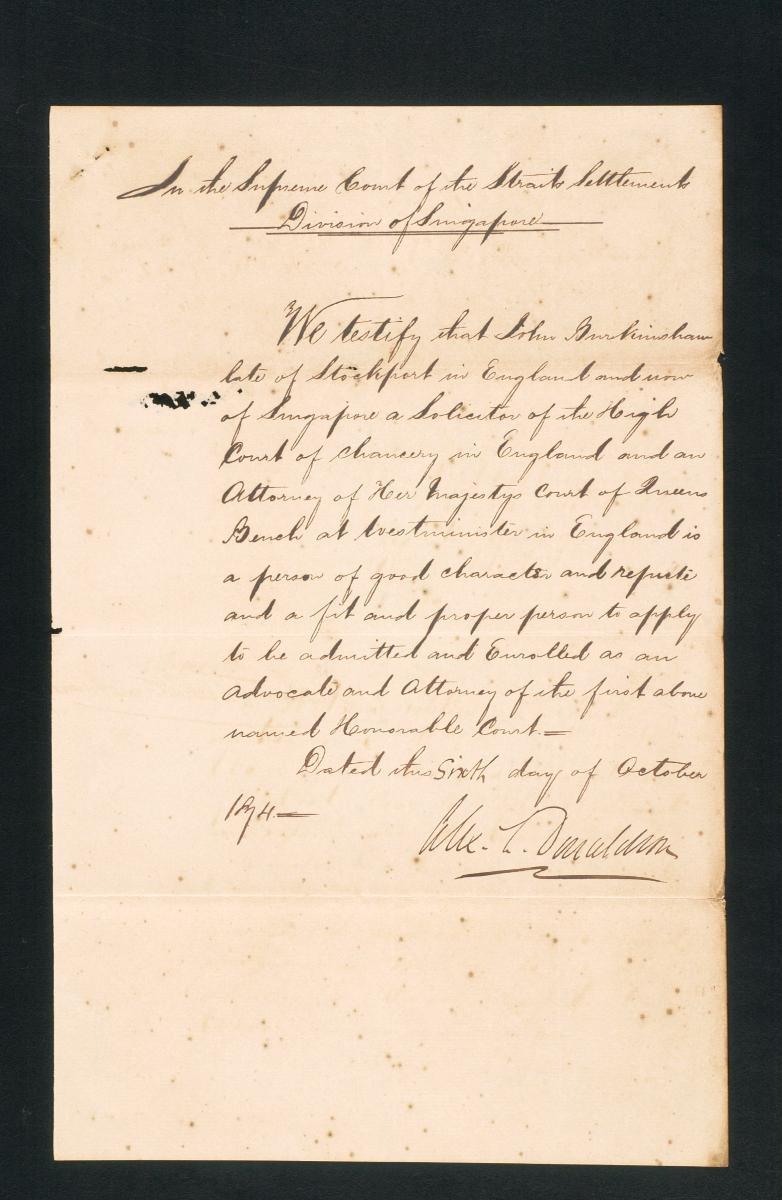 In the Supreme Court of the Straits Settlements
Division of Singapore
We testify that John Burkinshaw
late of Stockport in England and now
of Singapore a Solicitor of the High
Court of Chancery in England and an
Attorney of Her Majestys Court of Queens
Bench at Westminister in England is
a person of good character and repute
and a fit and proper person to apply
to be admitted and Enrolled as an
Advocate and Attorney of the first above
named Honorable Court.—
Dated this Sixth day of October
1874—
Alex. L. Donaldson